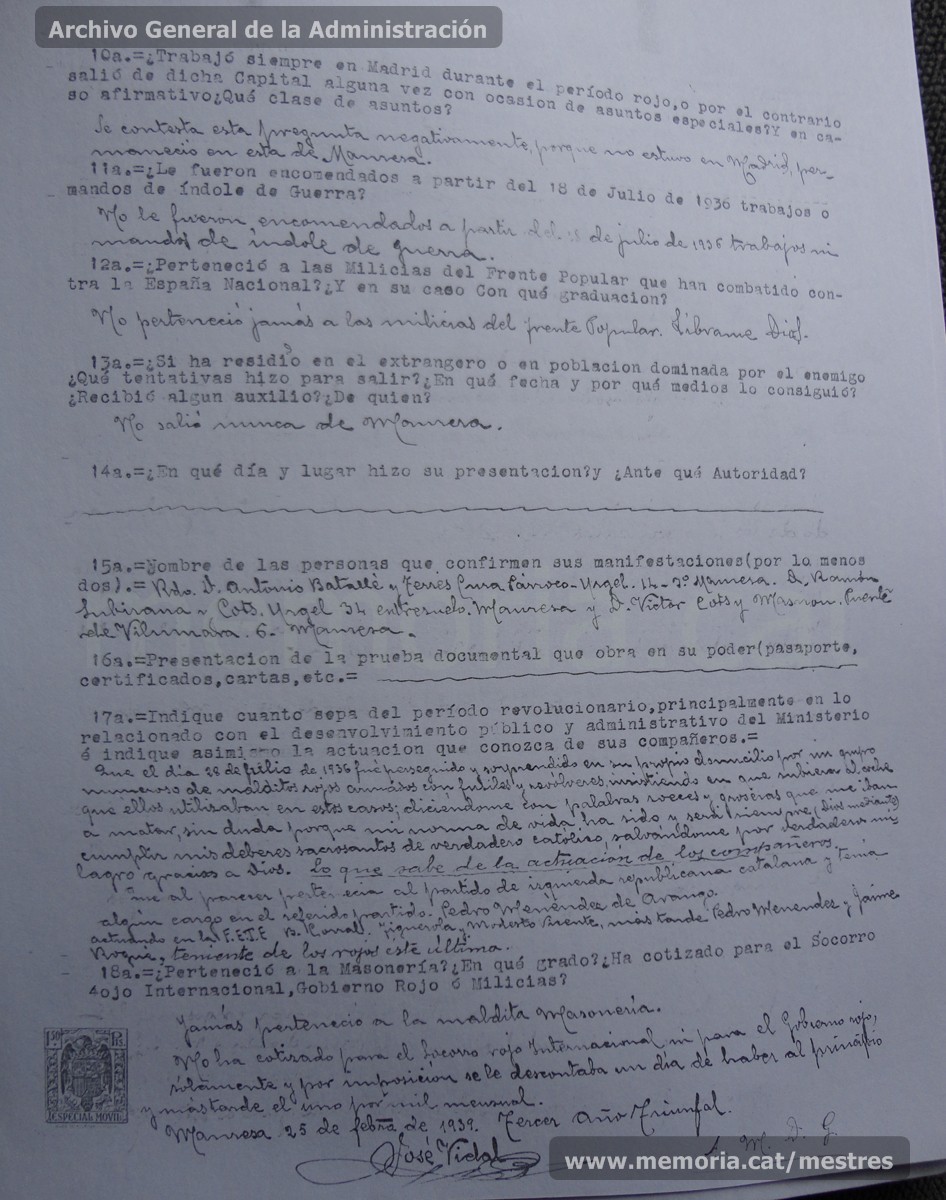 Archivo General de la Administración
10a.=¿Trabajó siempre en Madrid durante el período rojo,o por el contrario
salió de dicha Capital alguna vez con ocasion de asuntos especiales?Y en ca-
so afirmativo¿Qué clase de asuntos?
Se contesta esta pregunta negativamente, porque no estuvo en Madrid, per-
maneció en esta de Manresa.
11a.=¿Le fueron encomendados a partir del 18 de Julio de 1936 trabajos o
mandos de índole de Guerra?
No le fueron encomendados a partir del 18 de julio de 1936 trabajos ni
mandos de índole de guerra.
12a.=¿Perteneció a las Milicias del Frente Popular que han combatido con-
tra la España Nacional?¿Y en su caso Con qué graduacion?
No perteneció jamás a las milicias del frente Popular. Líbrame Dios.
13a.=¿Si ha residio en el extrangero o en poblacion dominada por el enemigo
¿Qué tentativas hizo para salir?¿En qué fecha y por qué medios lo consiguió?
¿Recibió algun auxilio?¿De quien?
No salió nunca de Manresa.
14a.=¿En qué día y lugar hizo su presentacion?y ¿Ante qué Autoridad?
15a.=Nombre de las personas que confirmen sus manifestaciones(por lo menos
dos).= Rdo. D. Antonio Batallé y Ferrés Cura Párroco-Urgel. 14-2º Manresa. D. Ramón
Subirana y Cots. Urgel 34 entresuelo. Manresa y D. Victor Cots y Masnou. Puente
de Vilumara. 6- Manresa.
16a.=Presentacion de la prueba documental que obra en su poder(pasaporte,
certificados,cartas,etc.=
17a.=Indique cuanto sepa del período revolucionario,principalmente en lo
relacionado con el desenvolvimiento público y administrativo del Ministerio
é indique asimismo la actuacion que conozca de sus compañeros.=
Que el día 28 de julio de 1936 fué perseguido y sorprendido en su propio domicilio por un grupo
numeroso de malditos rojos armados con fusiles y revólveres, insistiendo en que subiera al coche
que ellos utilisaban en estos casos; diciéndome con palabras soeces y groseras que me iban
a matar, sin duda porque mi norma de vida ha sido y será siempre, (Dios mediante)
cumplir mis deberes sacrosantos de verdadero católico, salvándome por verdadero mi-
lagro gracias a Dios. Lo que sabe de la actuación de los compañeros.
al parecer pertenecia al partido de izquierda republicana catalana y tenía
algún cargo en el referido partido. Pedro Menéndez de Arango.
actuando en la F.E.T.E B. Figuerola y Modesto Puente, más tarde Pedro Menendez y Jaime
Roqué, teniente de los rojos éste último.
18a.=¿Perteneció a la Masonería?¿En qué grado?¿Ha cotizado para el Socorro
4ojo Internacional,Gobierno Rojo ó Milicias?
Jamás perteneció a la maldita Masonería.
No ha cotizado para el Socorro rojo Internacional ni para el Gobierno rojo,
sólamente y por imposición se le descontaba un día de haber al principio
y más tarde el uno por mil mensual.
Manresa 25 de febrº de 1939. Tercer Año Triunfal.
José Vidal
A. M. D. G.
1'50 Ps.
ESPECIAL MOVIL
www.memoria.cat/mestres